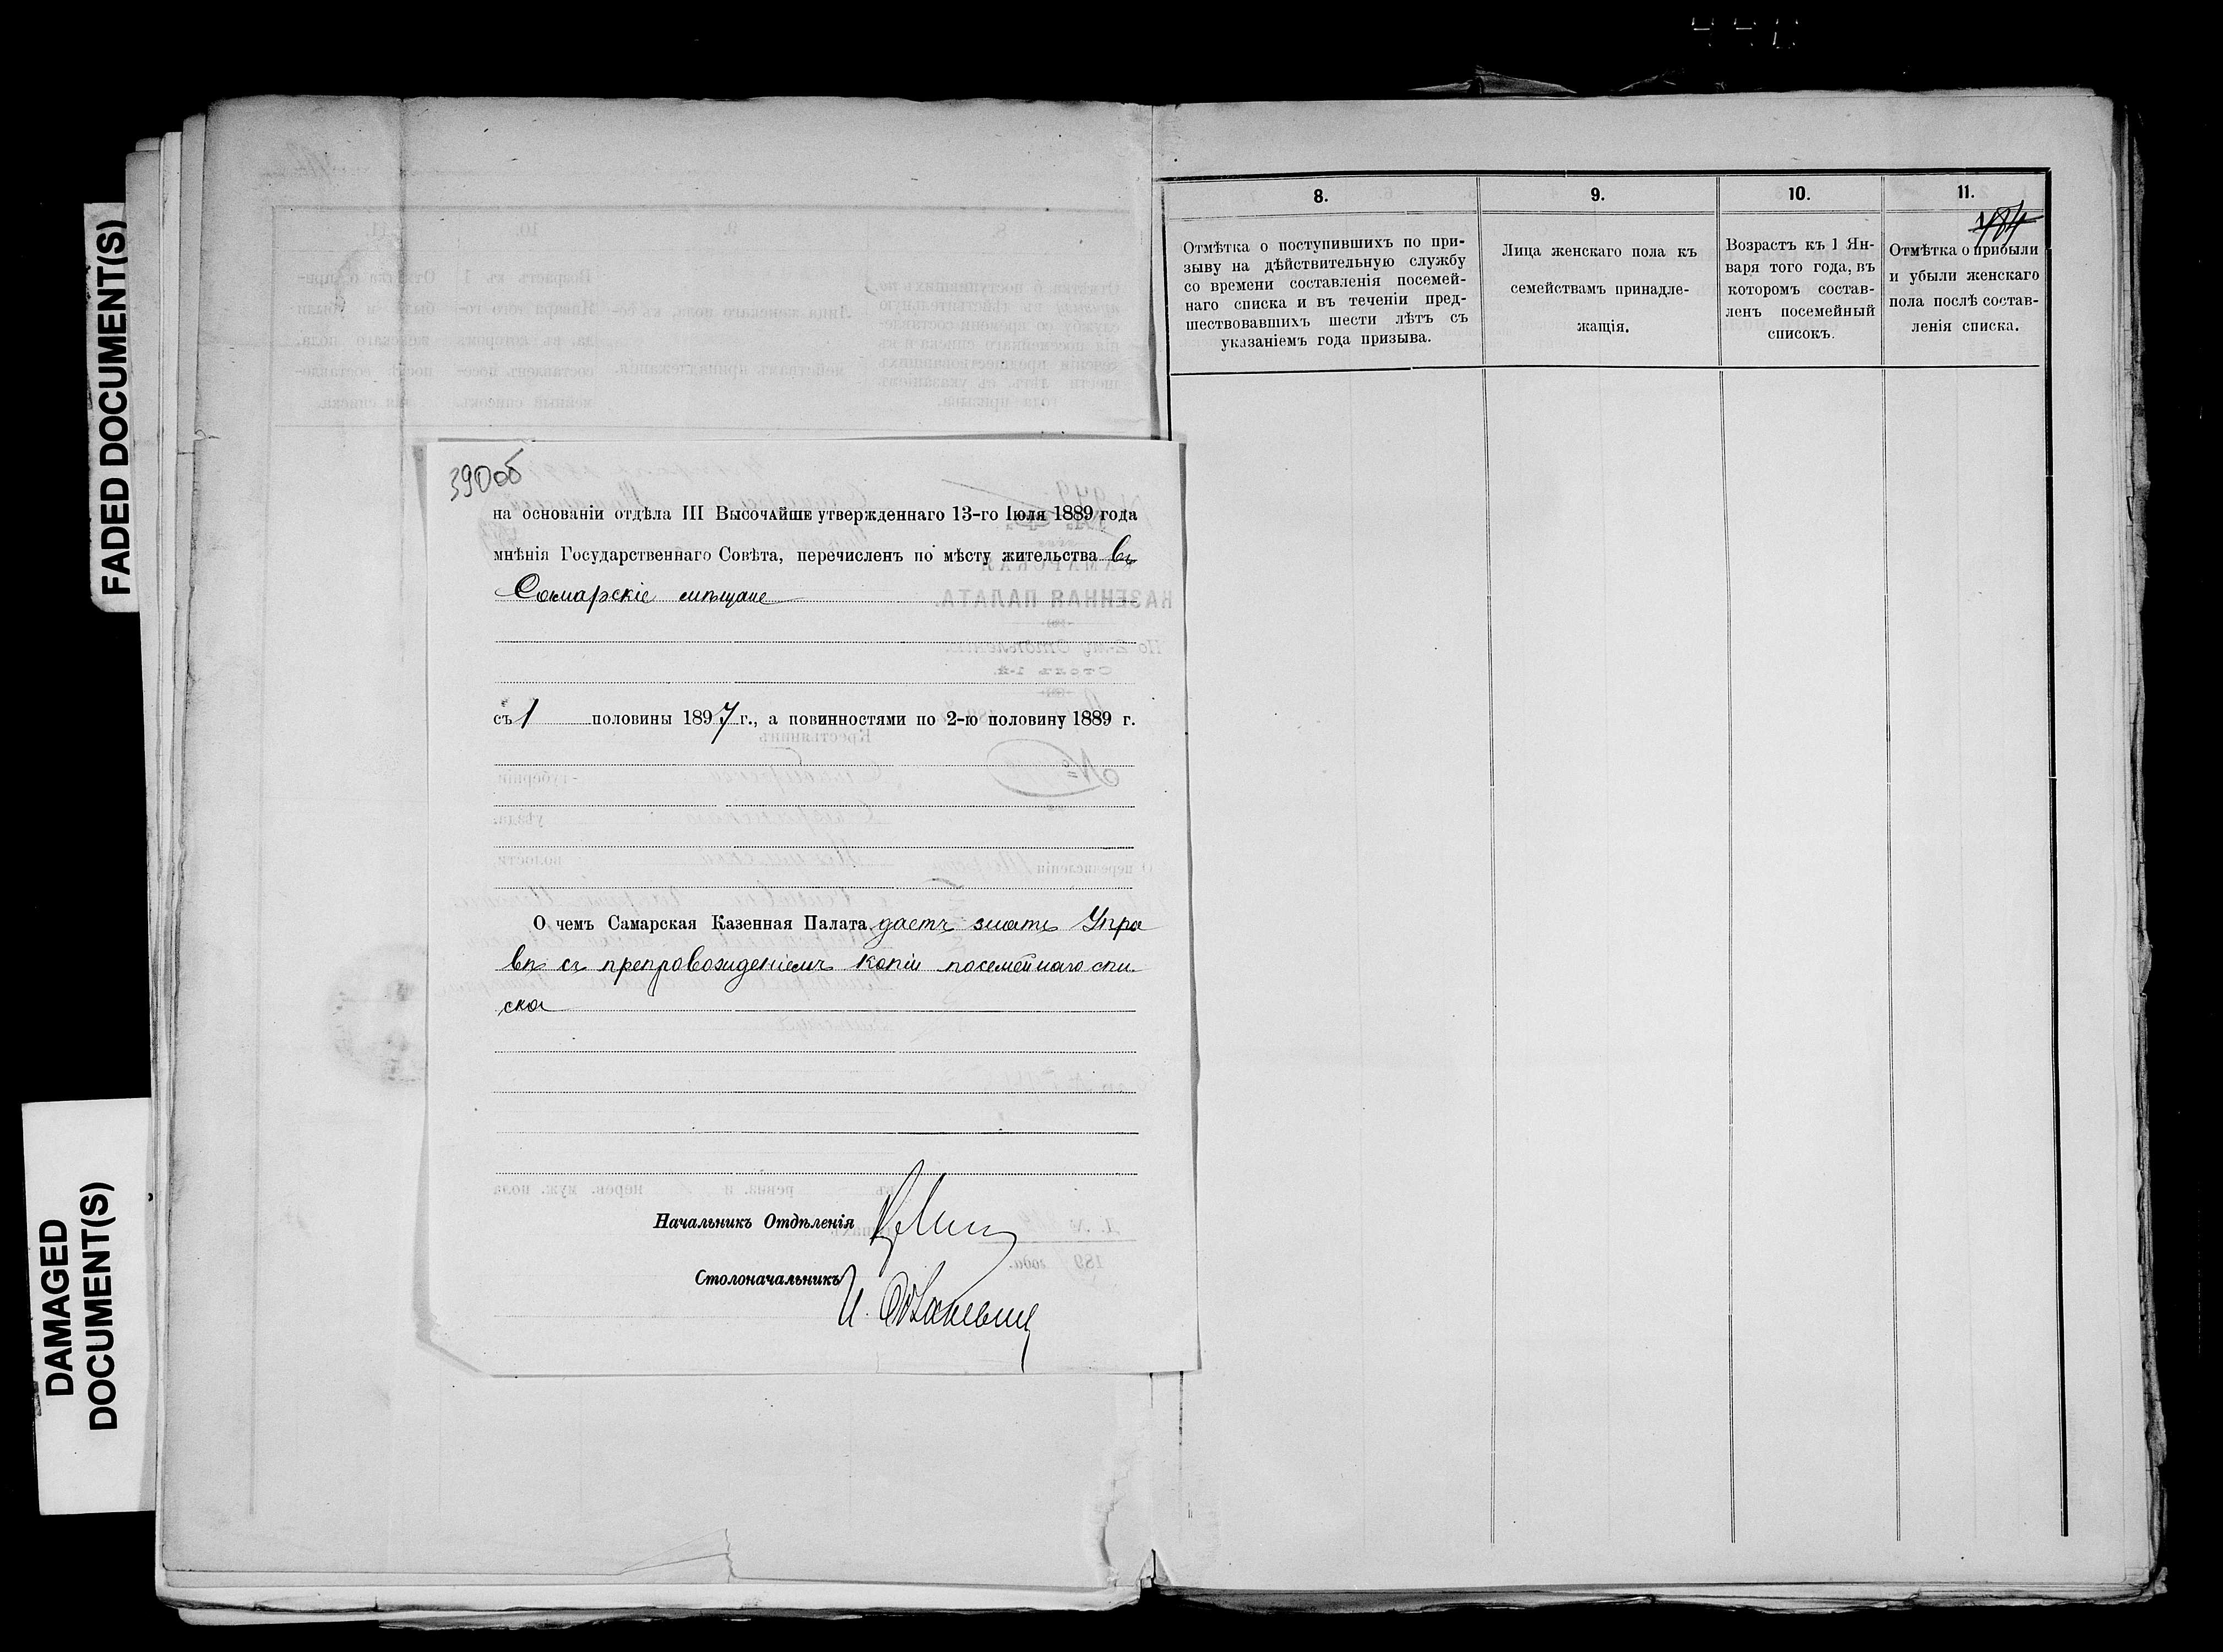 FADED DOCUMENT(S)
DAMAGED
DOCUMENT(S)
390об
на основаніи отдѣла III Высочайше утвержденнаго 13-го Іюля 1889 года
мнѣнія Государственнаго Совѣта, перечисленъ по мѣсту жительства въ
Самарскіе мѣщане
съ 1 половины 1897 г., а повинностями по 2-ю половину 1889 г.
О чемъ Самарская Казенная Палата даетъ знать Упра
вѣ съ препровожденіемъ копіи посемейнаго спи-
ска
Начальникъ Отдѣленія
Столоначальникъ И.
8.
Отмѣтка о поступившихъ по при-
зыву на дѣйствительную службу
со времени составленія посемей-
наго списка и въ теченіи пред-
шествовавшихъ шести лѣтъ съ
указаніемъ года призыва.
9.
Лица женскаго пола къ
семействамъ принадле-
жащія.
10.
Возрастъ къ 1 Ян-
варя того года, въ
которомъ состав-
ленъ посемейный
списокъ.
11.
484
Отмѣтка о прибыли
и убыли женскаго
пола послѣ состав-
ленія списка.